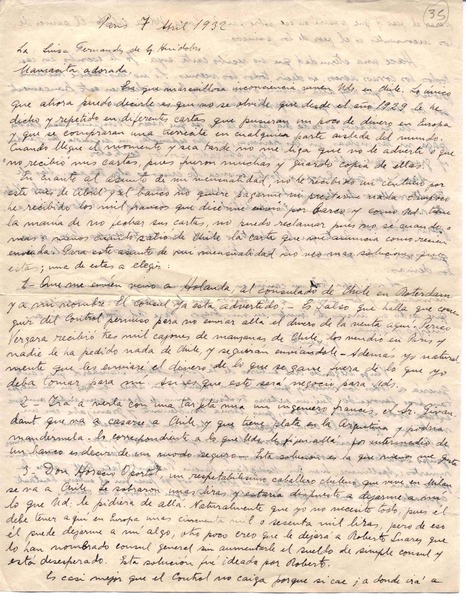 35
Paris 7 Abril 1932
La Luisa Fernandes de G. Huidobro
Mamacita adorada
Es que maravillosa inconsciencia viven Uds. en Chile. Lo único
que ahora puedo decirle es que no se olvide que desde el año 1929 le he
dicho y repetido en diferentes cartas que pusieran un poco de dinero en Europa
y que se compraran una tierrecita en cualquier parte aislada del mundo.
Cuando llegue el momento y sea tarde no me diga que no le advertí o que
no recibió mis cartas, pues fueron muchas y guardo copia de ellas.
En cuanto al asunto de mi mensualidad no he recibido un centavo por
este mes de Abril y el banco no quiere ni prestarme nada. Tampoco
he recibido los mil francos que dice me envió por barco y como Ud. tiene
la manía de no fechar sus cartas, no puedo reclamar pues no se cuando, o
mas o menos cuando salió de Chile la carte que me anuncia como recien
enviada. Para este asunto de mi mensualidad no veo mas solucion que
esta; una de estas a elegir:
1- Que me envien a Holanda, al consulado de Chile en Rotterdam
y a mi nombre. El consul ya esta advertido. - Es falso que halla que conse-
guir del Control permiso para no enviar alla el dinero de la renta aqui. Perico
Vergara recibió tres mil cajones de manzanas de Chile, los vendió en Paris y
nadie le ha pedido nada de Chile y seguiran enviandole - Ademas yo natural-
mente que les enviare el dinero, de lo que se gane fuera de lo que yo
deba tomar para mi. Asi es que este será negocio para Uds.
2 - Irá a verla con una tarjeta mia un ingeniero frances, el Sr. Givau-
dant que va a casarse a Chile y que tiene plata en la Argentina y podría
mandarmela. Lo correspondiente a lo que Uds. le fijen alla, por intermedio de
un banco es decir de un modo seguro. Esta solucion es la que mejor me gusta
3 - Don Horacio Oportot un respetabilisimo caballero chileno que vive en Milan
se va a Chile. Le sobraran unas liras y estaria dispuesto a dejarme a mi
lo que Ud. le pidiera de alla. Naturalmente que yo no necesito todo, pues el
debe tener aqui en Europa unas cincuenta mil o sesenta mil liras, pero de eso
él puede dejarme a mi algo, otro poco creo que le dejara a Roberto Suarez que
lo han nombrado consul general sin aumentarle el sueldo de simple consul y
está desesperado. Esta solucion fue ideada por Roberto.
Es casi mejor que el Control no caiga porque si cae ¿a donde irá a